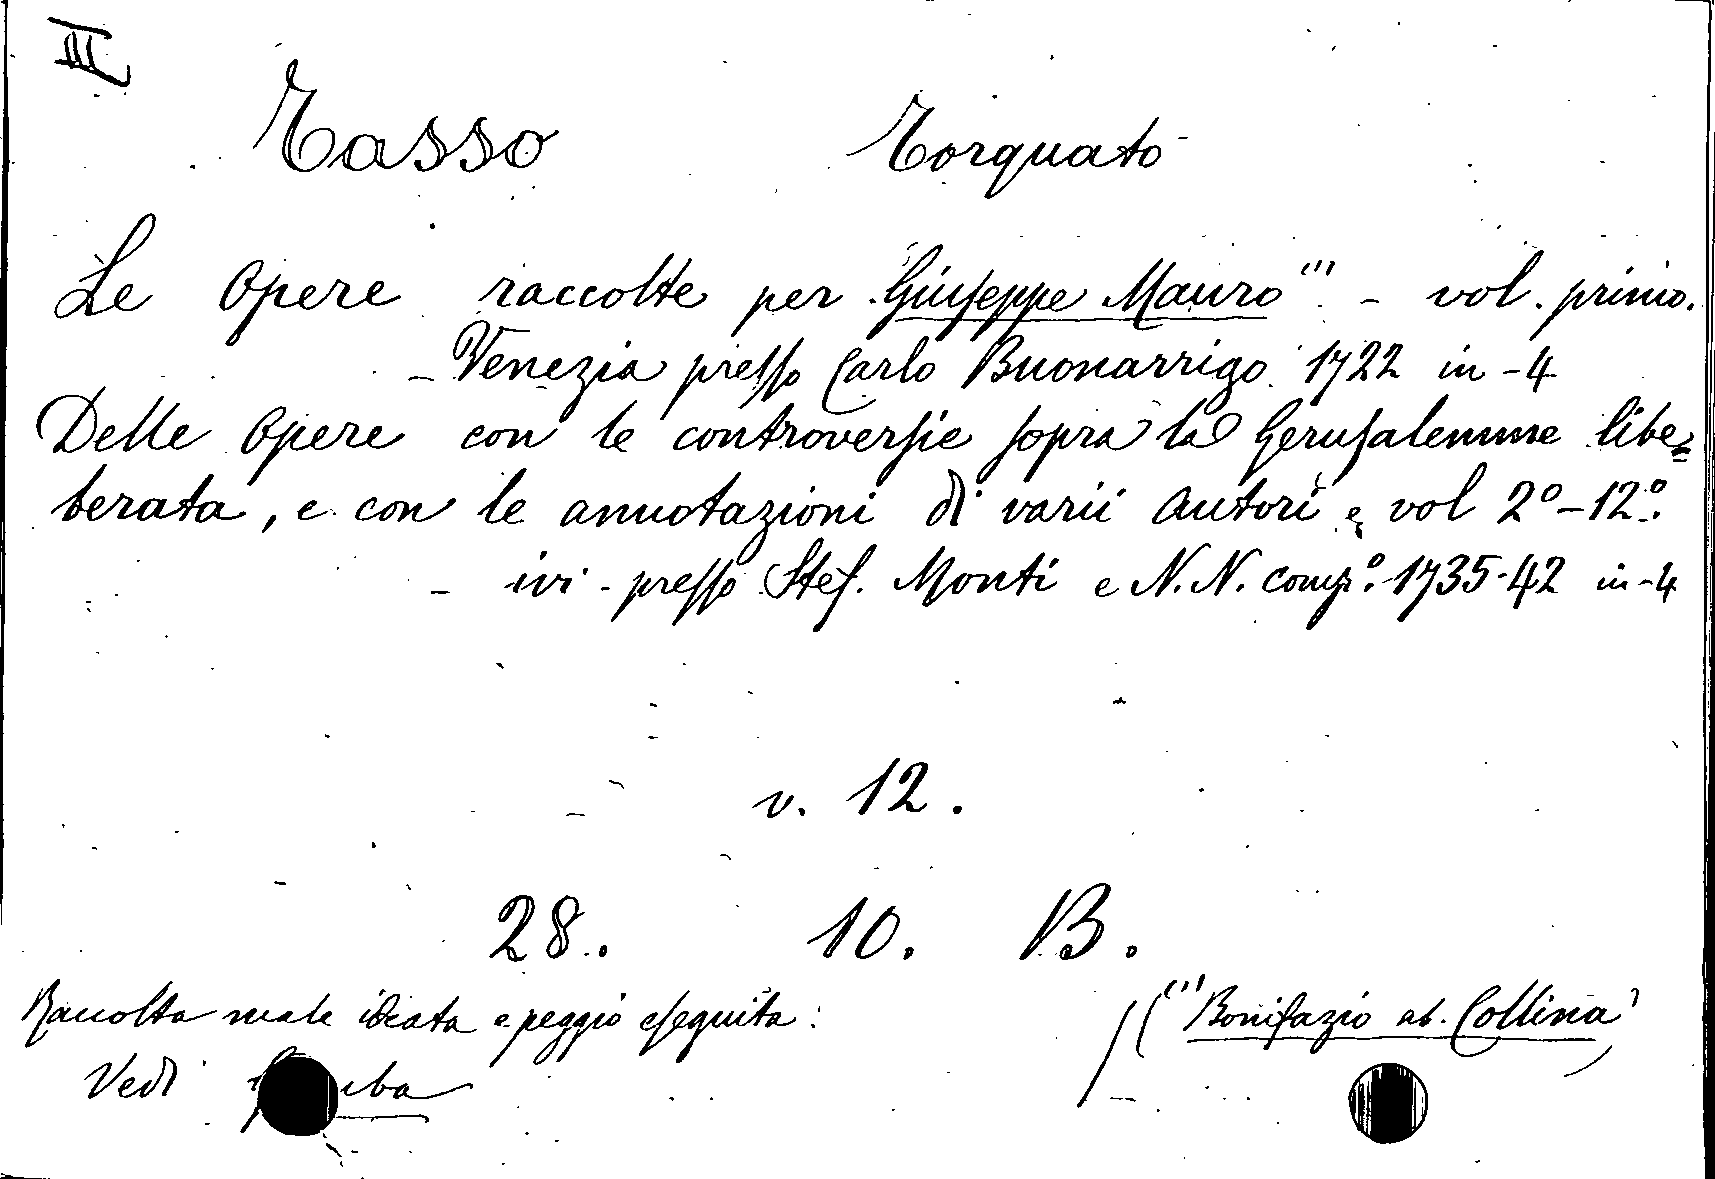 III
Tasso Torquato
Le Opere raccolte per Giuseppe Mauro (1) - vol. primo.
- Venezia presso Carlo Buonarrigo 1722 in-4
Delle Opere con le controversie sopra la Gerusalemme libe=
berata, e con le annotazioni di varii autori e vol 2º-12º.
- ivi - presso Stef. Monti e N.N. comp.º 1735-42 in-4
v. 12.
28. 10. B.
Raccolta male ideata e peggio eseguita.
((1) Bonifazio ab. Collina)
Vedi